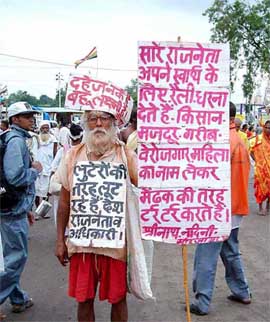 दहेज
सारे राजनेता
अपने स्वार्थ के
लिए रैली, धरना
देते हैं। किसान
मजदूर, गरीब
बेरोजगार, महिला
का नाम लेकर
मेंढक की तरह
टर्र टर्र करते हैं।
लुटेरों की
तरह लूट
रहे हैं, देश
राजनेता व
अधिकारी।